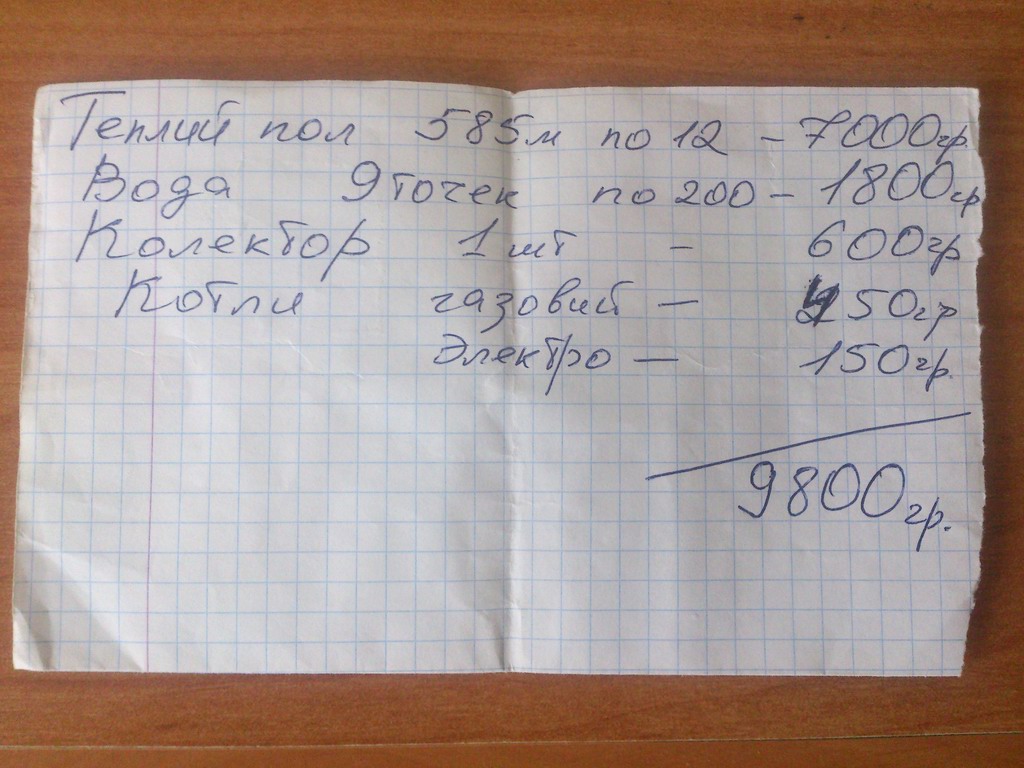 Теплий пол 585м по 12 - 7000гр
Вода 9 точек по 200 - 1800гр
Колектор 1 шт - 600гр
Котли газовий - 250гр
Электро - 150гр.
9800гр.